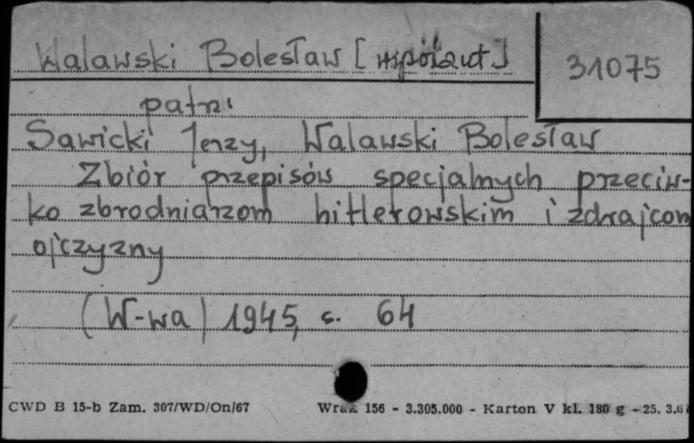 Walawski Bolesław [współaut]
31075
patrz:
Sawicki Jerzy, Walawski Bolesław
Zbiór przepisów specjalnych przeciw-
ko zbrodniarzom hitlerowskim i zdrajcom
ojczyzny
(W-wa) 1945, s. 64
CWD B 15-b Zam. 307/WD/On/67 Wrak 156 - 3.305.000 - Karton V kl. 180 g - 25. 3.67